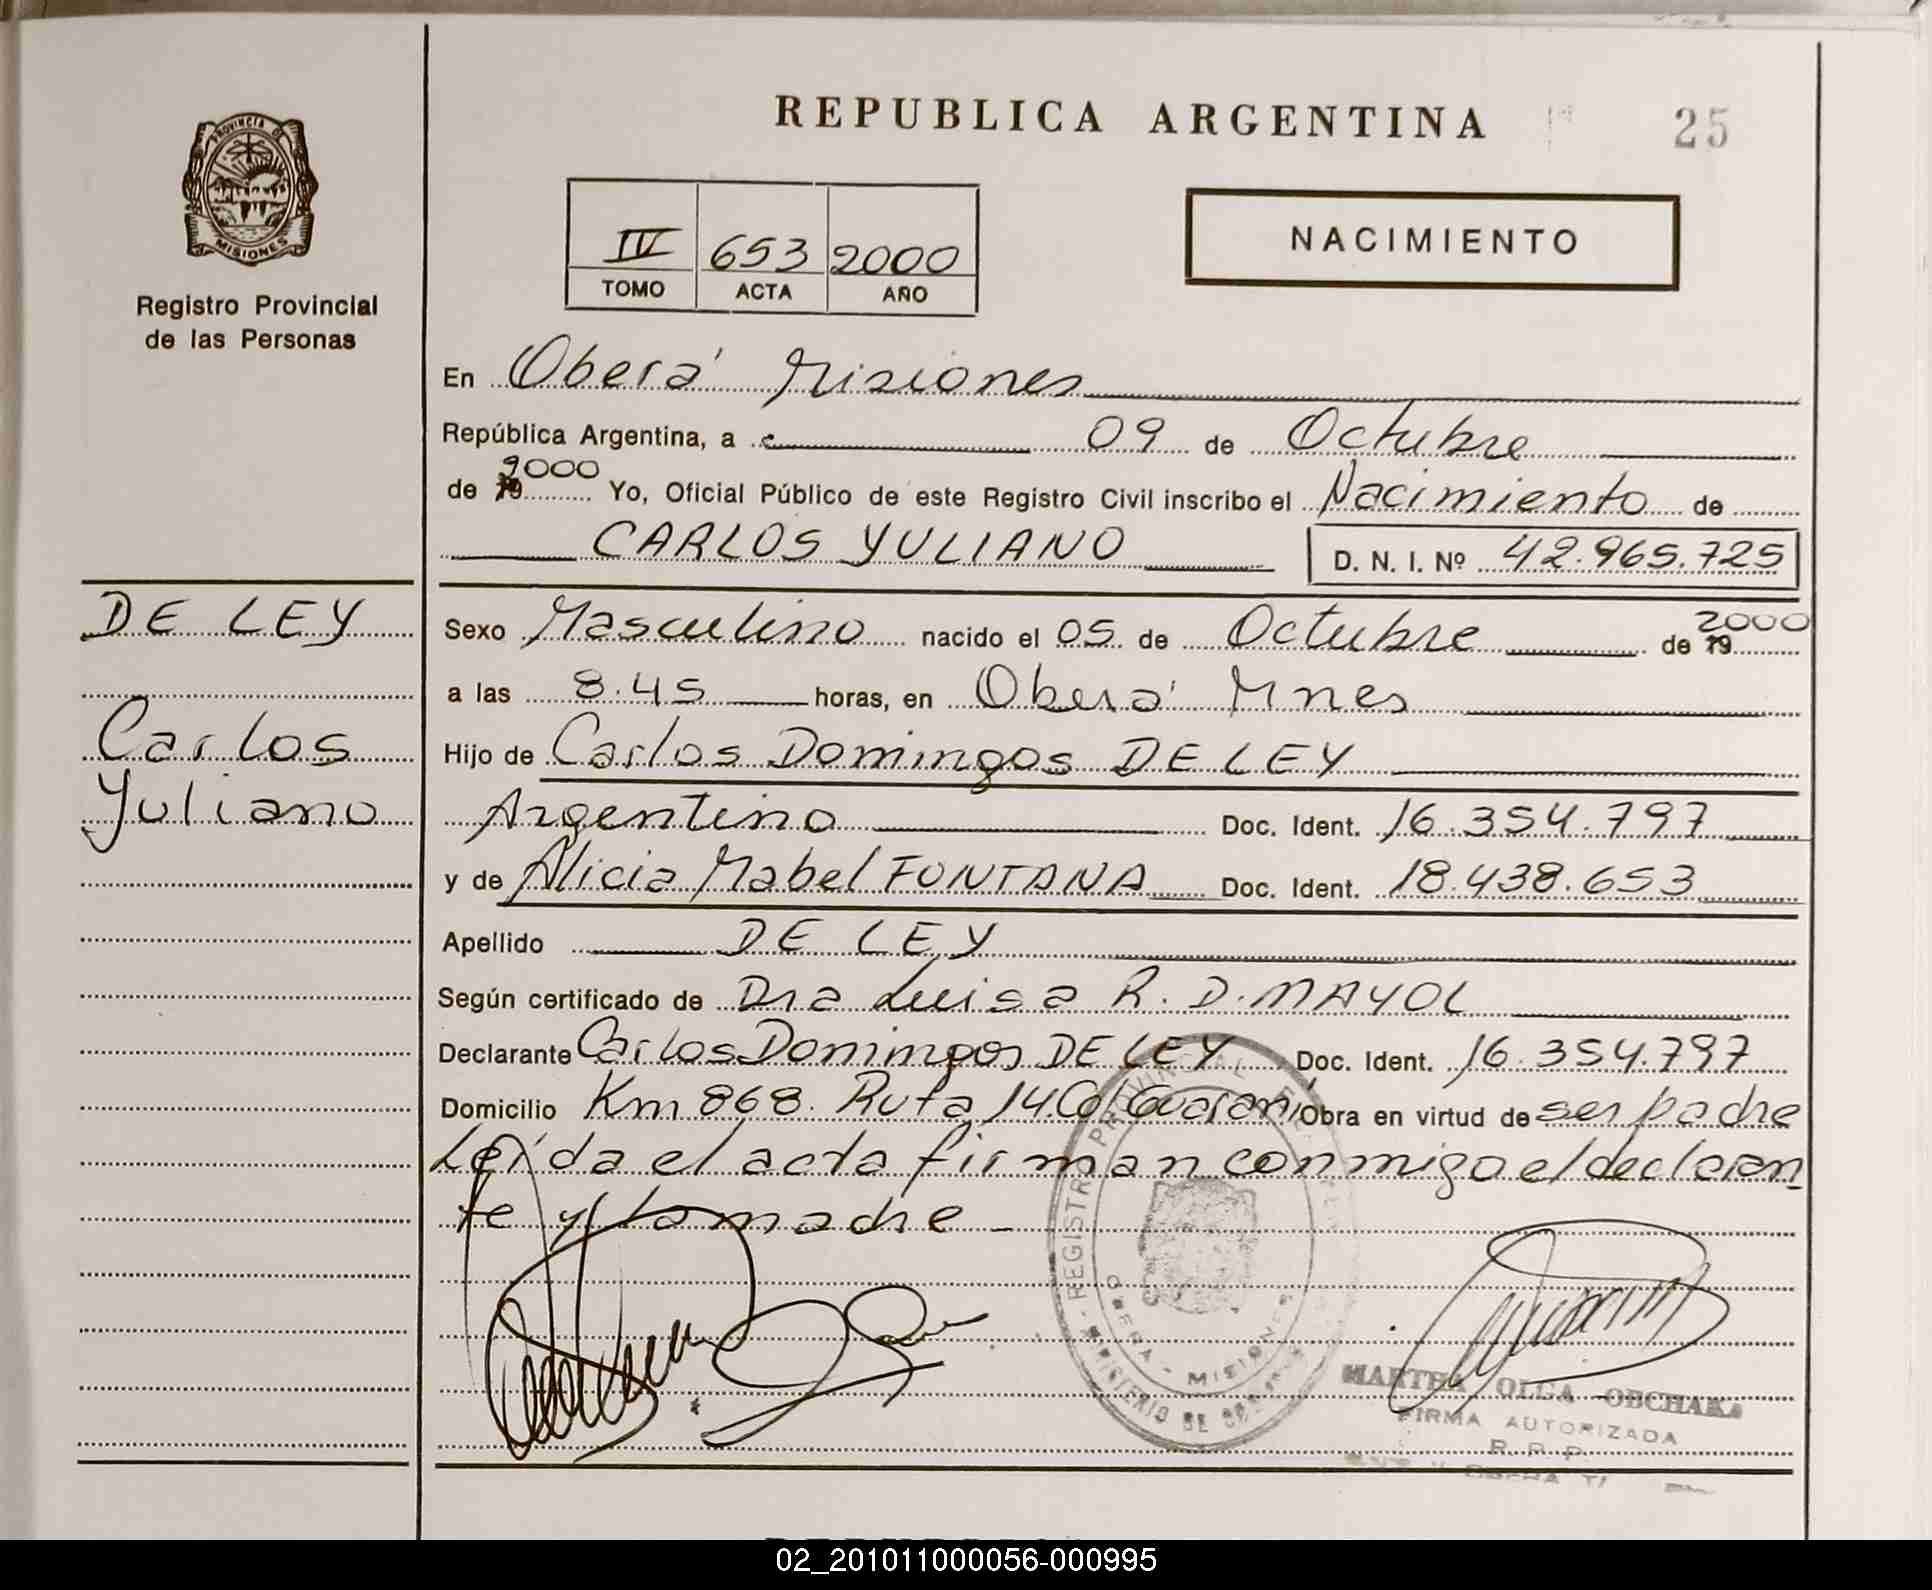 REPUBLICA ARGENTINA
25
PROVINCIA DE
MISIONES
Registro Provincial
de las Personas
IV 653 2000
TOMO ACTA AÑO
NACIMIENTO
En Oberá Misiones
República Argentina, a 09 de Octubre
de 19 2000 Yo, Oficial Público de este Registro Civil inscribo el Nacimiento de
CARLOS YULIANO D. N. I. Nº 42.965.725
DE LEY
Carlos
Yuliano
Sexo Masculino nacido el 05 de Octubre de 19 2000
a las 8.45 horas, en Oberá Mnes
Hijo de Carlos Domingos DE LEY
Argentino Doc. Ident. 16.354.797
y de Alicia Mabel FONTANA Doc. Ident. 18.438.653
Apellido DE LEY
Según certificado de Dra Luisa R. D. MAYOL
Declarante Carlos Domingos DE LEY Doc. Ident. 16.354.797
Domicilio Km 868 Ruta 14 Cd/Guaraní Obra en virtud de ser padre
Leída el acta firman conmigo el declaran
te y la madre -
REGISTRO PROVINCIAL
OBERA - MISIONES
MINISTERIO DE
MARTHA OLGA OBCHAKA
FIRMA AUTORIZADA
R. R. P.
02_201011000056-000995